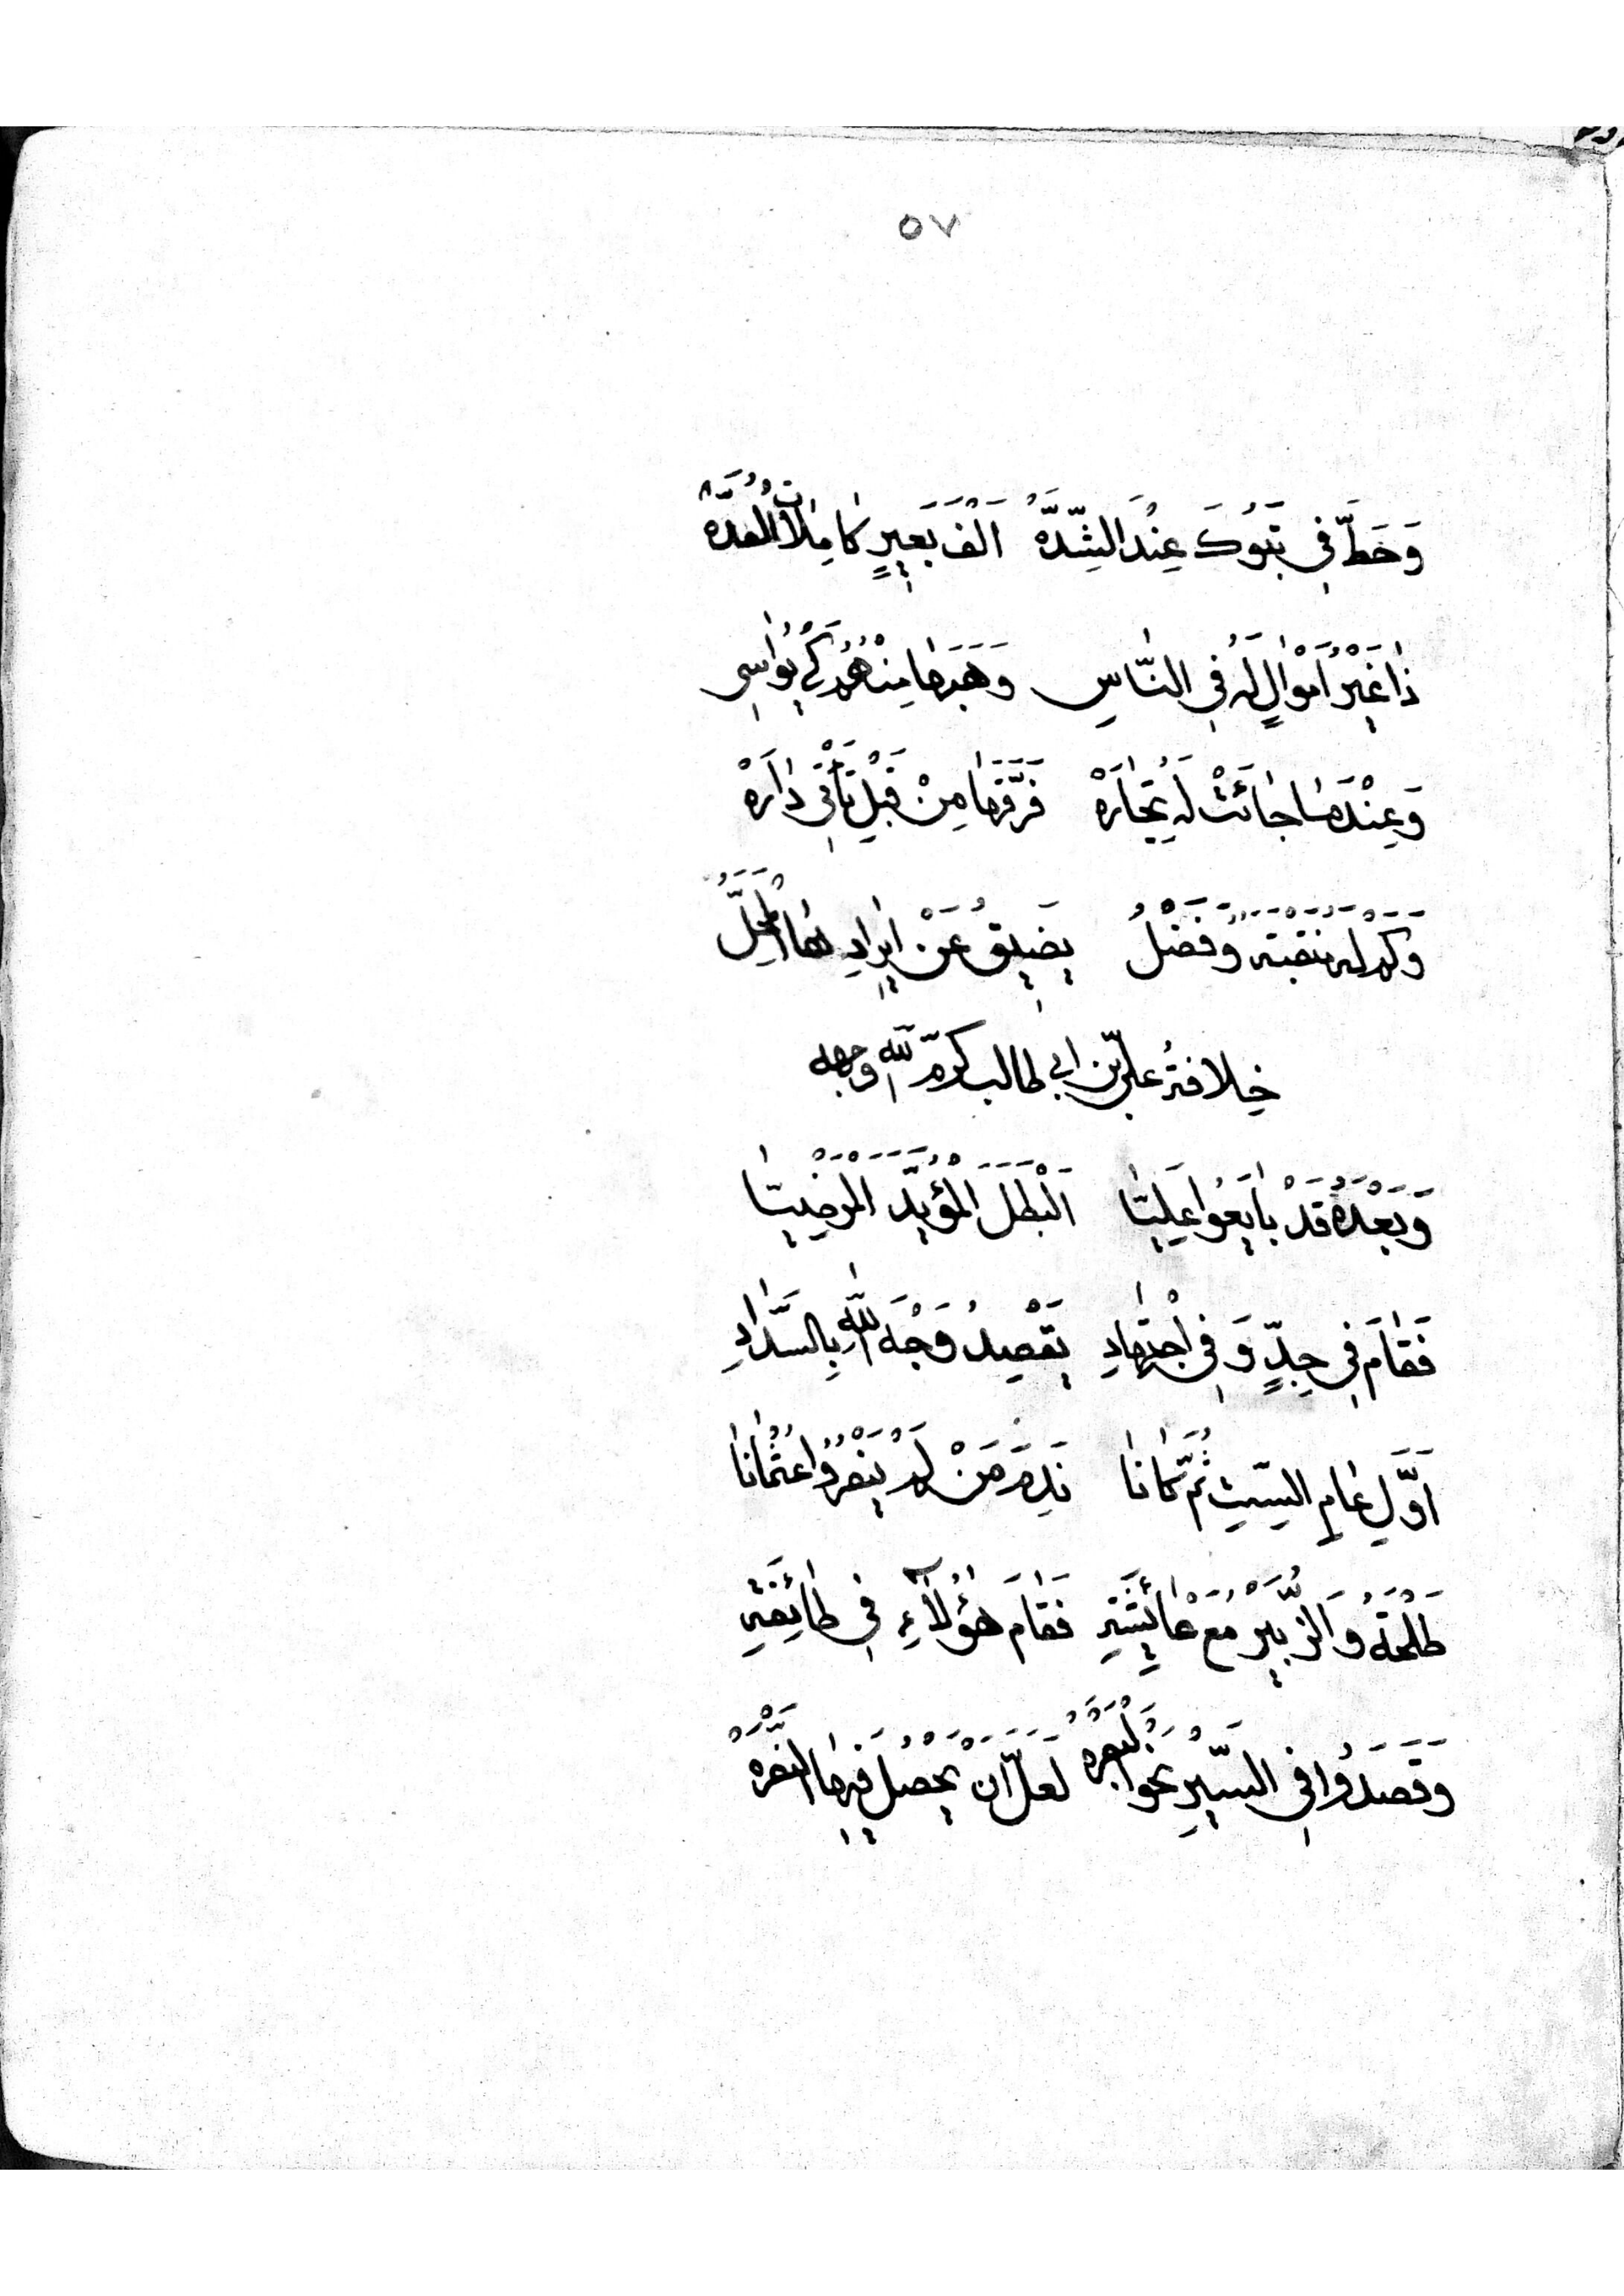 ٥٧
وَحَطَّ فِي تَبُوكَ عِنْدَ الشِّدَّهْ اَلْفَ بَعِيرٍ كَامِلَاتِ الْعُدَّهْ
ذَا غَيْرُ اَمْوَالٍ لَهُ فِي النَّاسِ وَهَبَهَا مِنْهُمْ لِكَيْ يُوَاسِي
وَعِنْدَمَا جَائَتْ لَهُ تِجَارَهْ فَرَّقَهَا مِنْ قَبْلِ تَأْتِي دَارَهْ
وَكَمْ لَهُ مَنْقَبَةٌ وَفَضْلُ يَضِيقُ عَنْ اِيرَادِهَا الْمَحَلُّ
خِلَافَةُ عَلِيّ بْن ابي طالب كرّم الله وجهه
وَبَعْدَهُ قَدْ بَايَعُوا عَلِيَّا اَلْبَطَلَ الْمُؤَيَّدَ الْمَرْضِيَّا
فَقَامَ فِي جِدٍّ وَفِي اجْتِهَادِ يَقْصِدُ وَجْهَ اللهِ بِالسَّدَادِ
اَوَّلَ عَامِ السِّتِّ ثُمَّ كَانَا نَدِمَ مَنْ لَمْ يَنْصُرُوا عُثْمَانَا
طَلْحَةُ وَالزُّبَيْرُ مَعْ عَائِشَةِ فَقَامَ هٰؤُلَآءِ فِي طَائِفَةِ
وَقَصَدُوا فِي السَّيْرِ نَحْوَ الْبَصْرَهْ لَعَلَّ اَنْ يَحْصُلَ فِيهَا النَّصْرَهْ